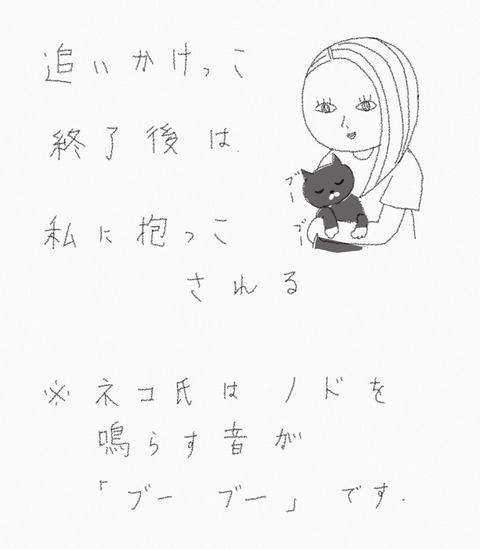 追いかけっこ
終了後は
私に抱っこ
される
ブー
ブー
※ネコ氏はノドを
鳴らす音が
「ブー ブー」です.